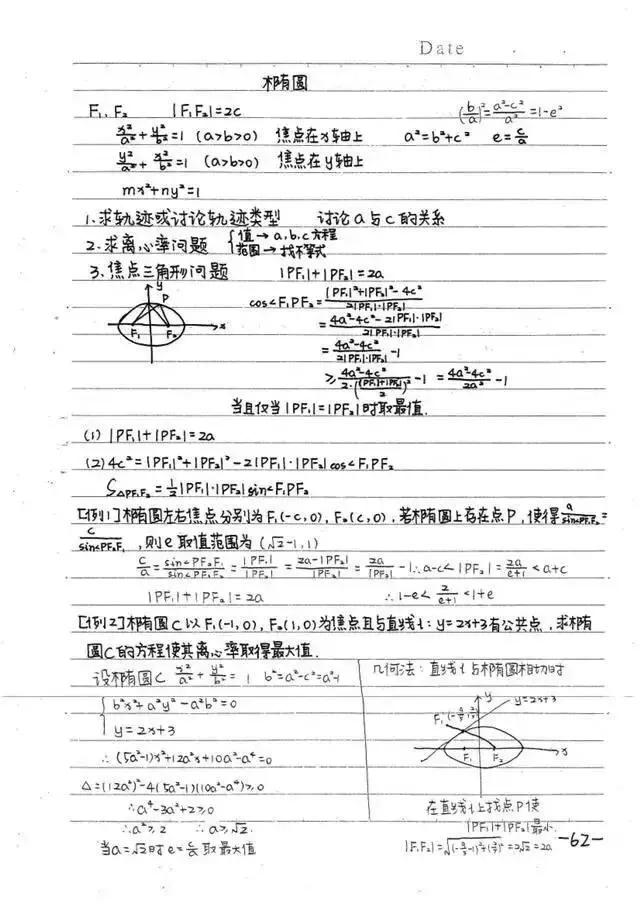 Date
椭圆
F₁, F₂ |F₁F₂|=2c (b/a)²=(a²-c²)/a²=1-e²
x²/a²+y²/b²=1 (a>b>0) 焦点在x轴上 a²=b²+c² e=c/a
y²/a²+x²/b²=1 (a>b>0) 焦点在y轴上
mx²+ny²=1
1.求轨迹或讨论轨迹类型 讨论a与c的关系
2.求离心率问题 {值→a,b,c方程
范围→找不等式
3.焦点三角形问题 |PF₁|+|PF₂|=2a
y P x F₁ F₂
cos∠F₁PF₂=(|PF₁|²+|PF₂|²-4c²)/(2|PF₁|·|PF₂|)
=(4a²-4c²-2|PF₁|·|PF₂|)/(2|PF₁|·|PF₂|)
=(4a²-4c²)/(2|PF₁|·|PF₂|)-1
≥(4a²-4c²)/(2·((|PF₁|+|PF₂|)/2)²)-1=(4a²-4c²)/(2a²)-1
当且仅当|PF₁|=|PF₂|时取最值.
(1) |PF₁|+|PF₂|=2a
(2) 4c²=|PF₁|²+|PF₂|²-2|PF₁|·|PF₂|cos∠F₁PF₂
S△PF₁F₂=½|PF₁|·|PF₂|sin∠F₁PF₂
[例1]椭圆左右焦点分别为F₁(-c,0), F₂(c,0), 若椭圆上存在点P, 使得a/sin∠PF₁F₂=
c/sin∠PF₂F₁, 则e取值范围为(√2-1,1)
c/a=sin∠PF₂F₁/sin∠PF₁F₂=|PF₁|/|PF₂|=(2a-|PF₂|)/|PF₂|=2a/|PF₂|-1∴a-c<|PF₂|=2a/(e+1)<a+c
|PF₁|+|PF₂|=2a ∴1-e<2/(e+1)<1+e
[例2]椭圆C以F₁(-1,0), F₂(1,0)为焦点且与直线l:y=2x+3有公共点, 求椭
圆C的方程使其离心率取得最大值.
设椭圆C x²/a²+y²/b²=1 b²=a²-c²=a²-1
{b²x²+a²y²-a²b²=0
y=2x+3
∴(5a²-1)x²+12a²x+10a²-a⁴=0
△=(12a²)²-4(5a²-1)(10a²-a⁴)≥0
∴a⁴-3a²+2≥0
∴a²≥2 ∴a≥√2.
当a=√2时e=c/a取最大值
几何法:直线l与椭圆相切时
y y=2x+3
F₁ F₂ x
在直线l上找点P使
|PF₁|+|PF₂|最小.
-62-